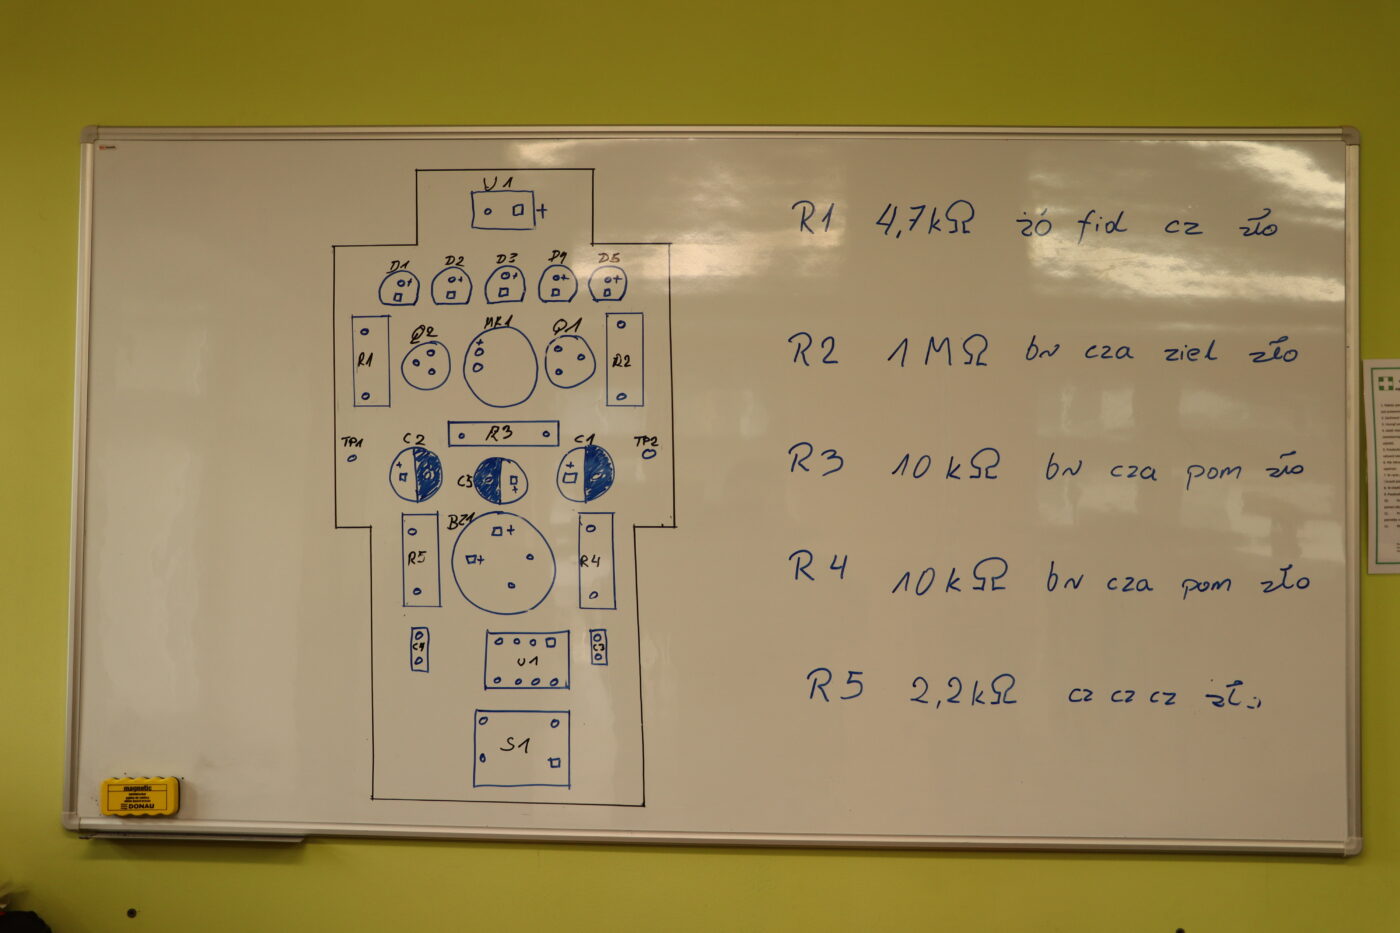 U1
+
D1 D2 D3 D4 D5
+ + + + +
Q2 MK1 Q1
+
R1 R2
R3
TP1 C2 C1 TP2
+ +
C5
+
BZ1
+
+
R5 R4
C4 C3
U1
S1
R1 4,7kΩ żó fiol cz zło
R2 1MΩ br cza ziel zło
R3 10kΩ br cza pom zło
R4 10kΩ br cza pom zło
R5 2,2kΩ cz cz cz zło
magnetic
DONAU